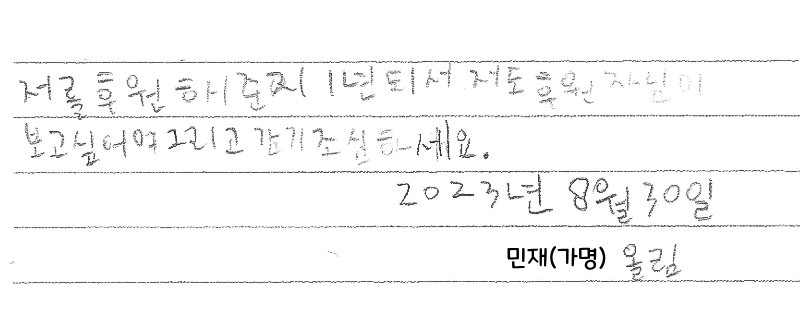 저를 후원 해준지 1년 되서 저도 후원자님이
보고싶어여 그리고 감기 조심하세요.
2023년 8월 30일
민재(가명) 올림